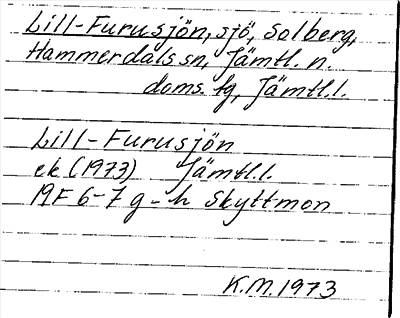 Lill-Furusjön, sjö, Solberg,
Hammerdals sn, Jämtl. n.
doms. fg, Jämtl.l.
Lill-Furusjön
ek (1973) Jämtl.l.
19F 6-7 g-h Skyttmon
K.M.1973